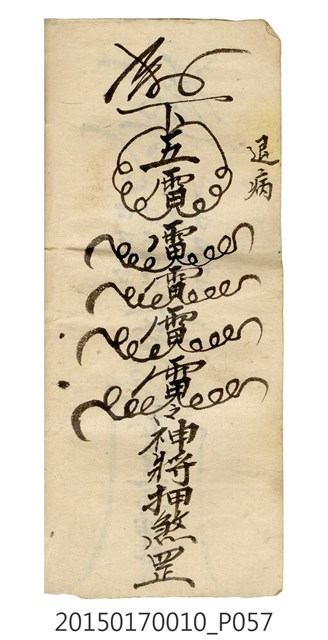 退病
五雷
雷
雷
雷
雷
神將押煞罡
20150170010_P057